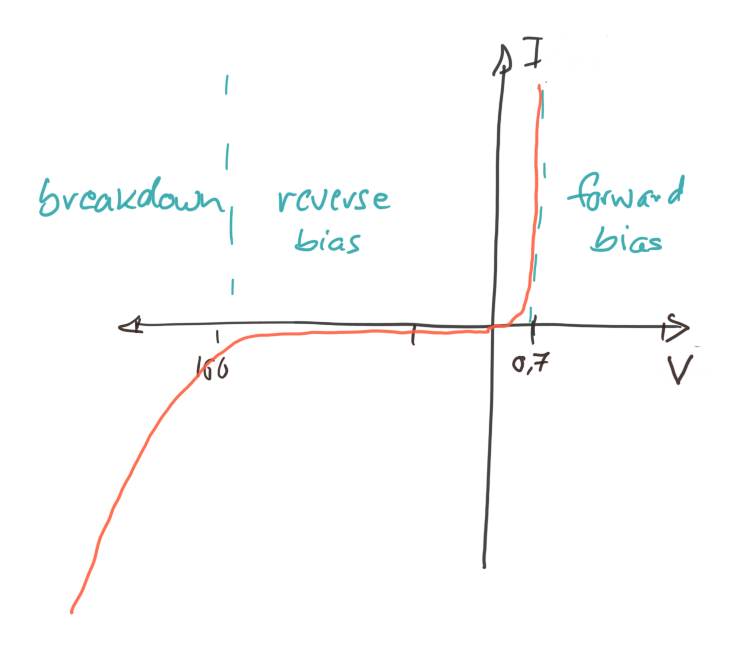 I
breakdown
reverse
bias
forward
bias
100
0,7
V